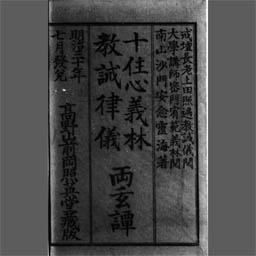 戒壇長老上田照遍教誡儀閲
大學講師密門宥範義林閲
南山沙門安念靈海著
十住心義林
教誡律儀
両玄譚
明治三十年
七月發兌
高野山前岡照公堂藏版